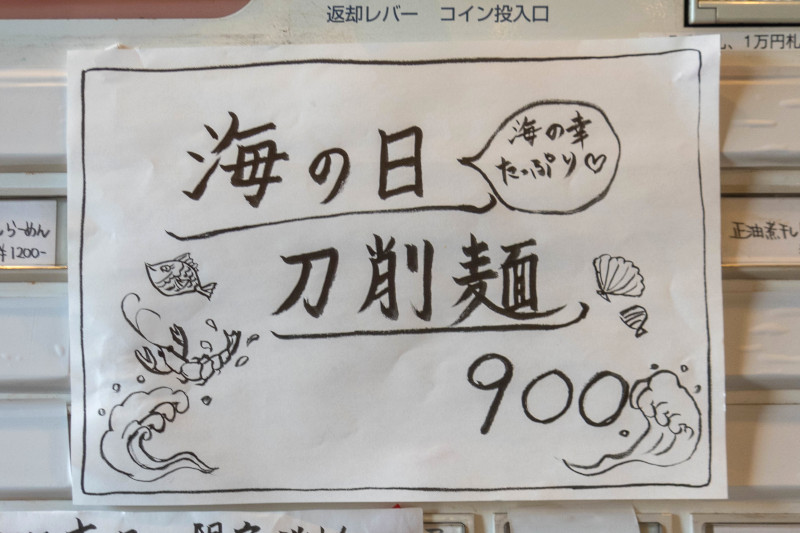 返却レバー コイン投入口
1万円札
海の日
海の幸
たっぷり♡
刀削麺
900
らーめん
¥1200-
正油煮干し